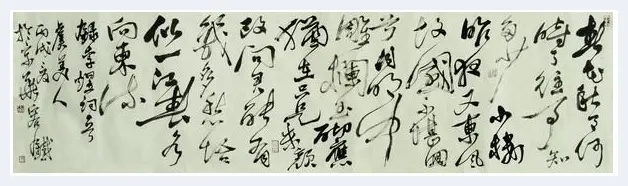 春花秋月何
時了往事知
多少小樓
昨夜又東風
故國不堪回
首月明中
雕欄玉砌應
猶在只是朱顏
改問君能有
幾多愁恰
似一江春水
向東流
錄李煜詞句
虞美人
丙戌夏
於京華